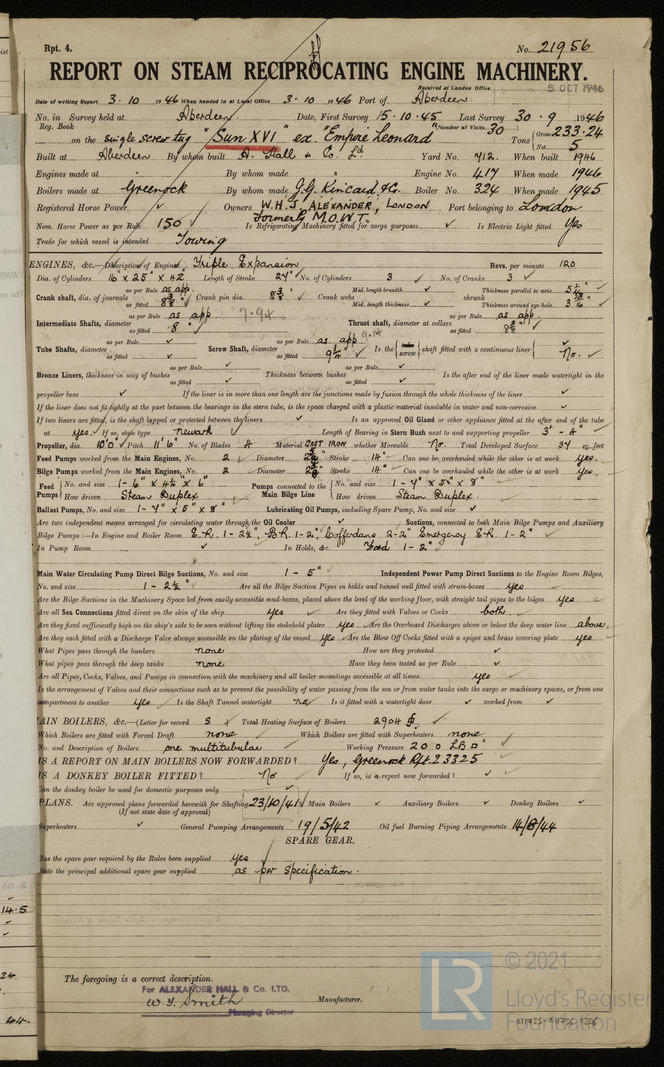 Rpt. 4.
No. 21956
REPORT ON STEAM RECIPROCATING ENGINE MACHINERY.
Received at London Office 5 OCT 1946
Date of writing Report 3.10 1946 When handed in at Local Office 3.10 1946 Port of Aberdeen
No. in Survey held at Aberdeen Date, First Survey 15.10.45 Last Survey 30.9 1946
Reg. Book (Number of Visits 30)
on the single screw tug "Sun XVI" ex "Empire Leonard" Tons Gross 233.24 Net 5
Built at Aberdeen By whom built A. Hall & Co. Ld Yard No. 712. When built 1946
Engines made at " By whom made " Engine No. 417 When made 1946
Boilers made at Greenock By whom made J.G. Kincaid & Co. Boiler No. 324 When made 1945
Registered Horse Power Owners W.H.J. ALEXANDER, LONDON Port belonging to London
Formerly M.O.W.T.
Nom. Horse Power as per Rule 150 Is Refrigerating Machinery fitted for cargo purposes Is Electric Light fitted Yes
Trade for which vessel is intended Towing
ENGINES, &c.—Description of Engines Triple Expansion Revs. per minute 120
Dia. of Cylinders 16 x 25" x 42 Length of Stroke 27" No. of Cylinders 3 No. of Cranks 3
Crank shaft, dia. of journals as per Rule as app. as fitted Crank pin dia. Crank webs Mid. length breadth Mid. length thickness shrunk Thickness parallel to axis Thickness around eye-hole
Intermediate Shafts, diameter as per Rule as app. 7.94 as fitted 8 Thrust shaft, diameter at collars as per Rule as app. as fitted
Tube Shafts, diameter as per Rule as fitted Screw Shaft, diameter as per Rule as app. 9.14 as fitted Is the screw shaft fitted with a continuous liner No.
Bronze Liners, thickness in way of bushes as per Rule as fitted Thickness between bushes as per Rule as fitted Is the after end of the liner made watertight in the
propeller boss If the liner is in more than one length are the junctions made by fusion through the whole thickness of the liner
If the liner does not fit tightly at the part between the bearings in the stern tube, is the space charged with a plastic material insoluble in water and non-corrosive
If two liners are fitted, is the shaft lapped or protected between the liners Is an approved Oil Gland or other appliance fitted at the after end of the tube
at yes If so, state type Newark Length of Bearing in Stern Bush next to and supporting propeller 3'-4"
Propeller, dia. 10'0" Pitch 11'6" No. of Blades 4 Material CAST IRON whether Moveable No. Total Developed Surface 37 sq. feet
Feed Pumps worked from the Main Engines, No. 2 Diameter Stroke 14" Can one be overhauled while the other is at work yes.
Bilge Pumps worked from the Main Engines, No. 2 Diameter Stroke 14" Can one be overhauled while the other is at work yes.
Feed Pumps No. and size 1-6" x 4½ x 6" How driven Steam Duplex Pumps connected to the Main Bilge Line No. and size 1-7" x 5" x 8" How driven Steam Duplex.
Ballast Pumps, No. and size 1-7" x 5" x 8" Lubricating Oil Pumps, including Spare Pump, No. and size
Are two independent means arranged for circulating water through the Oil Cooler Suctions, connected to both Main Bilge Pumps and Auxiliary
Bilge Pumps:—In Engine and Boiler Room E.R. 1-2½", B.R. 1-2", Cofferdams 2-2" Emergency E.R. 1-2"
In Pump Room In Holds, &c. Ford 1-2"
Main Water Circulating Pump Direct Bilge Suctions, No. and size 1-5" Independent Power Pump Direct Suctions to the Engine Room Bilges,
No. and size 1-2½" Are all the Bilge Suction Pipes in holds and tunnel well fitted with strum-boxes yes
Are the Bilge Suctions in the Machinery Space led from easily accessible mud-boxes, placed above the level of the working floor, with straight tail pipes to the bilges yes
Are all Sea Connections fitted direct on the skin of the ship yes Are they fitted with Valves or Cocks both.
Are they fixed sufficiently high on the ship's side to be seen without lifting the stokehold plates yes. Are the Overboard Discharges above or below the deep water line above.
Are they each fitted with a Discharge Valve always accessible on the plating of the vessel yes Are the Blow Off Cocks fitted with a spigot and brass covering plate yes
What Pipes pass through the bunkers none How are they protected
What pipes pass through the deep tanks none Have they been tested as per Rule
Are all Pipes, Cocks, Valves, and Pumps in connection with the machinery and all boiler mountings accessible at all times yes
Is the arrangement of Valves and their connections such as to prevent the possibility of water passing from the sea or from water tanks into the cargo or machinery spaces, or from one
compartment to another yes Is the Shaft Tunnel watertight no Is it fitted with a watertight door worked from
MAIN BOILERS, &c.—(Letter for record S Total Heating Surface of Boilers 2904
Which Boilers are fitted with Forced Draft none Which Boilers are fitted with Superheaters none
No. and Description of Boilers one multitubular Working Pressure 200 LB□"
IS A REPORT ON MAIN BOILERS NOW FORWARDED? Yes, Greenock Rpt. 23325
IS A DONKEY BOILER FITTED? No If so, is a report now forwarded?
Can the donkey boiler be used for domestic purposes only
PLANS. Are approved plans forwarded herewith for Shafting 23/10/41 Main Boilers Auxiliary Boilers Donkey Boilers
(If not state date of approval)
Superheaters General Pumping Arrangements 19/5/42 Oil fuel Burning Piping Arrangements 14/8/44
SPARE GEAR.
Has the spare gear required by the Rules been supplied yes
State the principal additional spare gear supplied as per Specification.
The foregoing is a correct description.
For ALEXANDER HALL & Co. LTD.
W.J. Smith Manufacturer.
Managing Director
14.5
24.
44.
LR
© 2021
Lloyd's Register
Foundation